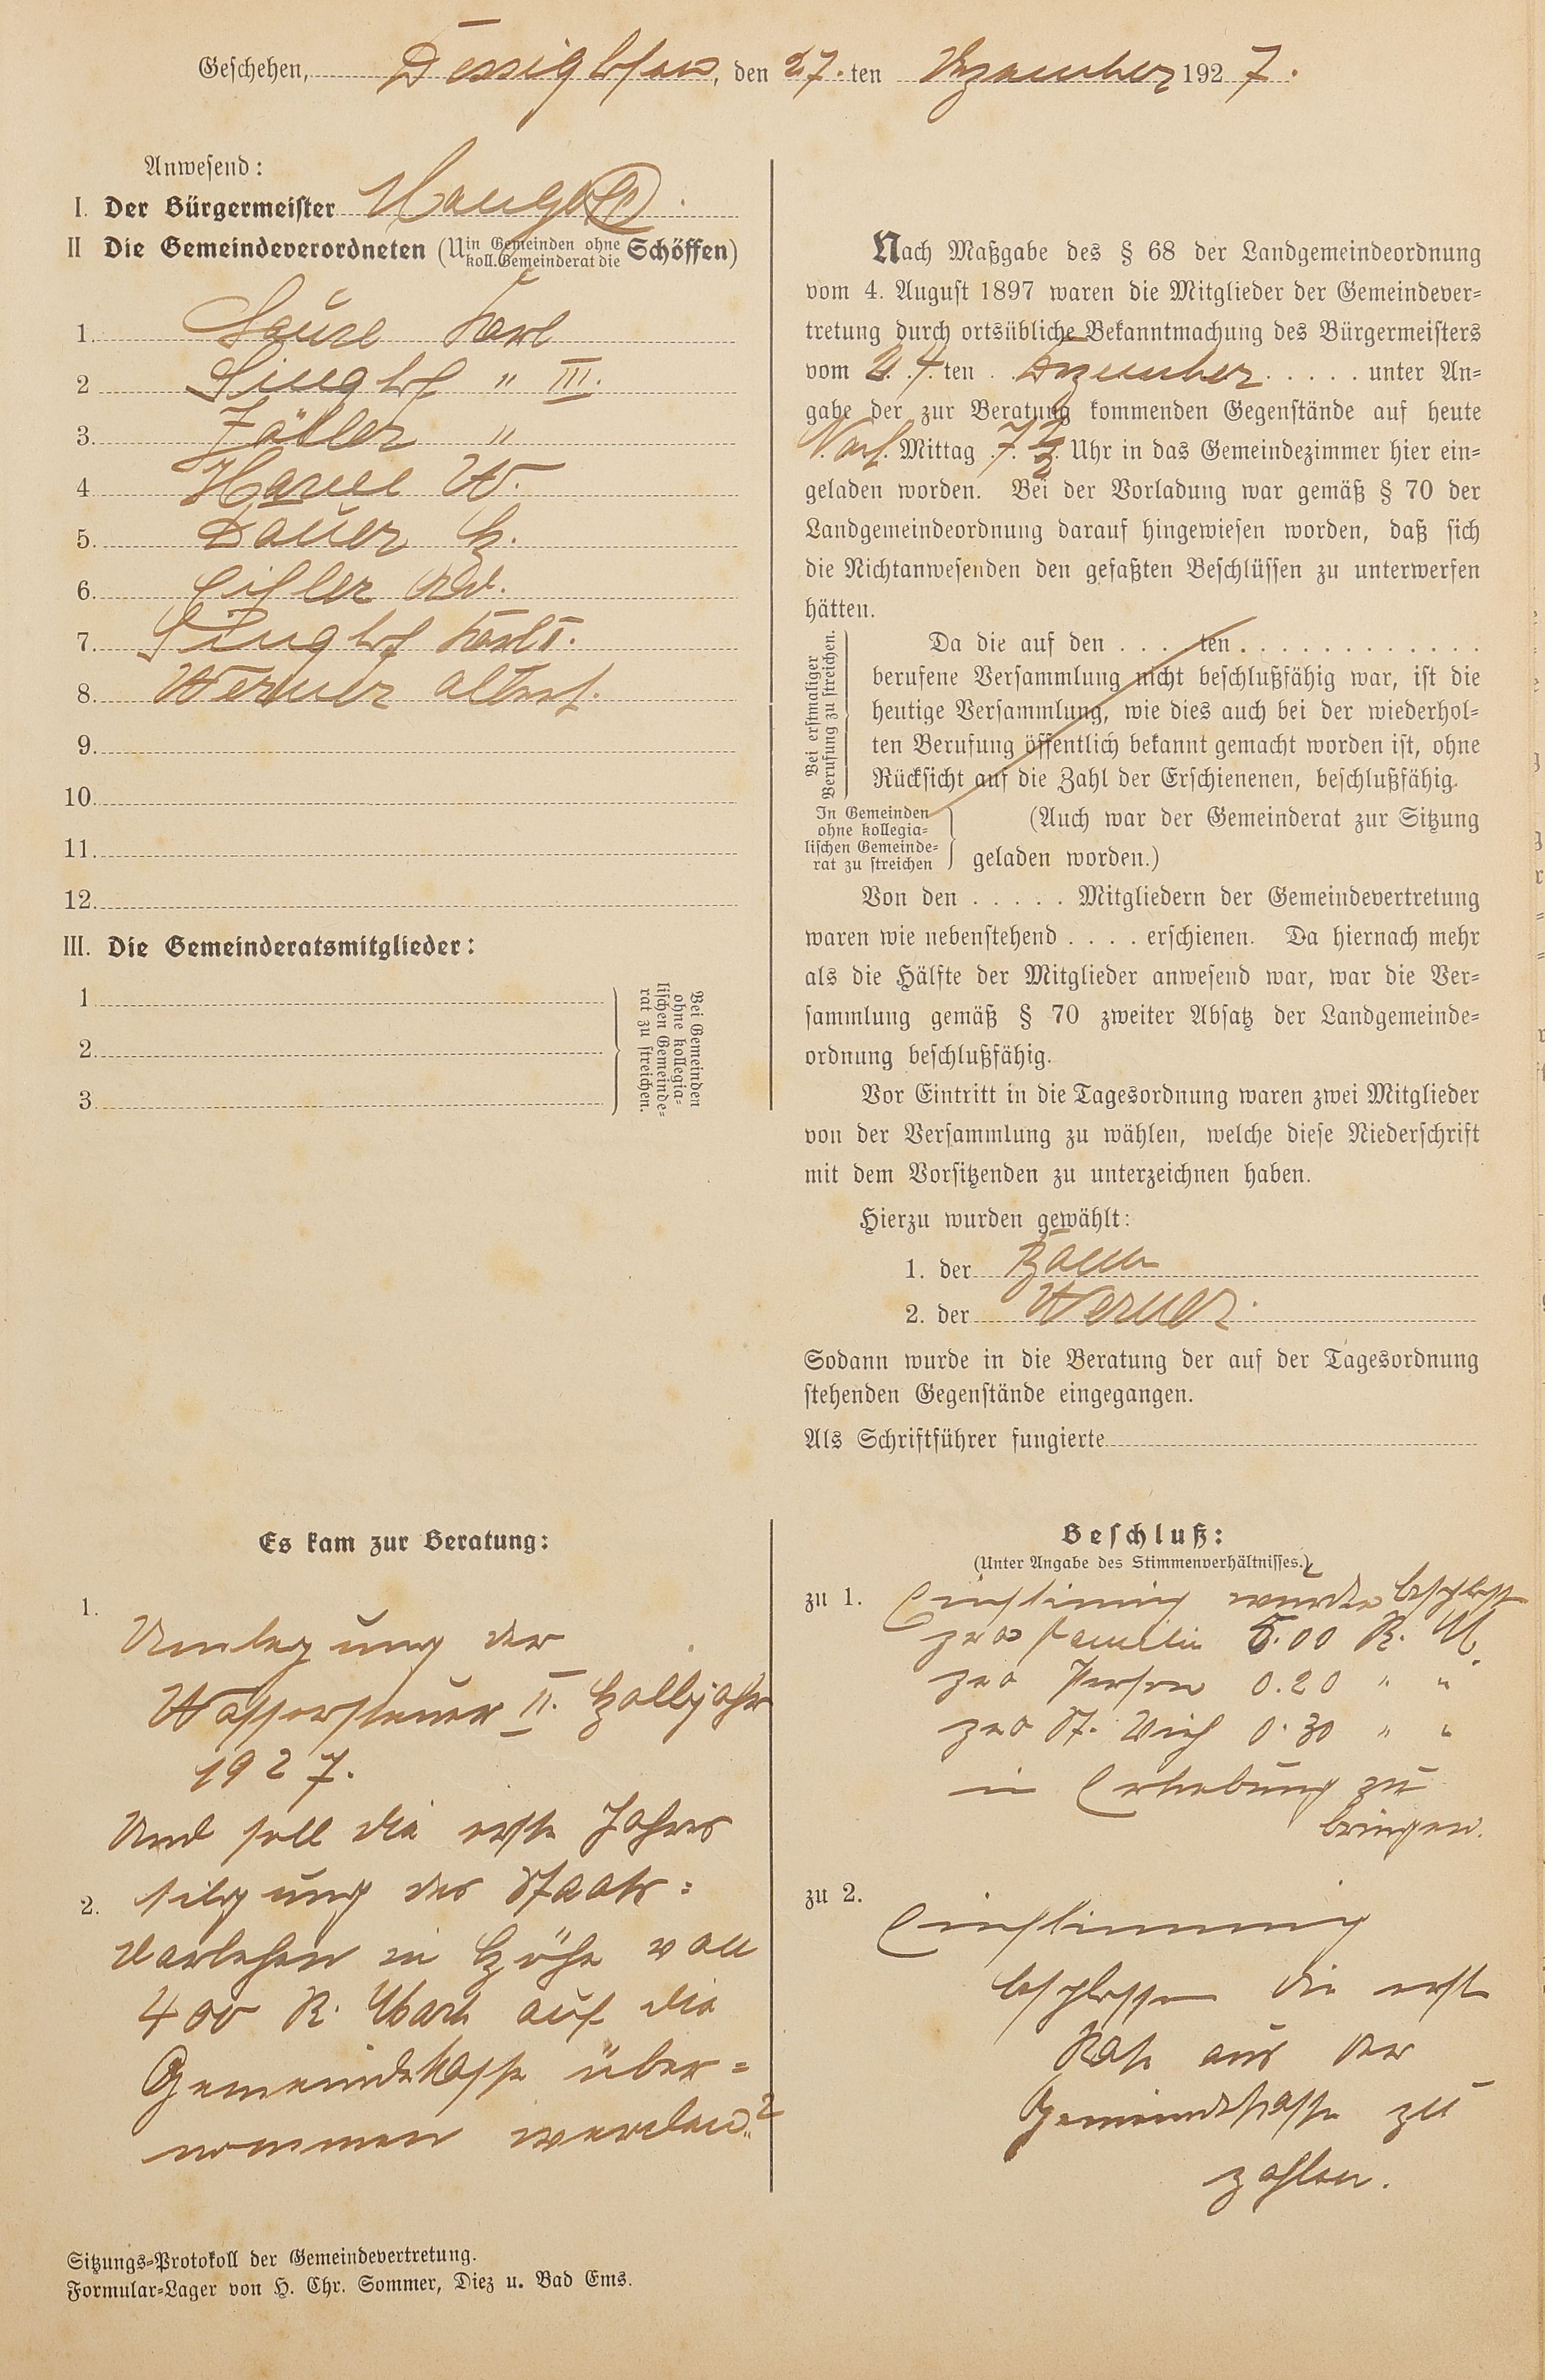 Geschehen, Dessighofen, den 27. ten Dezember 1927.
Anwesend:
I. Der Bürgermeister Mangold.
II Die Gemeindeverordneten (U in Gemeinden ohne koll. Gemeinderat die Schöffen)
1. Karl
2 Singhof " III.
3. "
4 W.
5. Dauer H.
6.
7. Singhof Karl I.
8. Werner
9.
10.
11.
12.
III. Die Gemeinderatsmitglieder:
1
2.
3.
Bei Gemeinden
ohne kollegia-
lischen Gemeinde-
rat zu streichen.
Nach Maßgabe des § 68 der Landgemeindeordnung
vom 4. August 1897 waren die Mitglieder der Gemeindever-
tretung durch ortsübliche Bekanntmachung des Bürgermeisters
vom 24. ten Dezember unter An-
gabe der zur Beratung kommenden Gegenstände auf heute
Nach. Mittag 7 Uhr in das Gemeindezimmer hier ein-
geladen worden. Bei der Vorladung war gemäß § 70 der
Landgemeindeordnung darauf hingewiesen worden, daß sich
die Nichtanwesenden den gefaßten Beschlüssen zu unterwerfen
hätten.
Bei erstmaliger
Berufung zu streichen.
Da die auf den . . . ten . . . . . . . . . . . .
berufene Versammlung nicht beschlußfähig war, ist die
heutige Versammlung, wie dies auch bei der wiederhol-
ten Berufung öffentlich bekannt gemacht worden ist, ohne
Rücksicht auf die Zahl der Erschienenen, beschlußfähig.
In Gemeinden
ohne kollegia-
lischen Gemeinde-
rat zu streichen
(Auch war der Gemeinderat zur Sitzung
geladen worden.)
Von den . . . . . Mitgliedern der Gemeindevertretung
waren wie nebenstehend . . . . erschienen. Da hiernach mehr
als die Hälfte der Mitglieder anwesend war, war die Ver-
sammlung gemäß § 70 zweiter Absatz der Landgemeinde-
ordnung beschlußfähig.
Vor Eintritt in die Tagesordnung waren zwei Mitglieder
von der Versammlung zu wählen, welche diese Niederschrift
mit dem Vorsitzenden zu unterzeichnen haben.
Hierzu wurden gewählt:
1. der
2. der Werner.
Sodann wurde in die Beratung der auf der Tagesordnung
stehenden Gegenstände eingegangen.
Als Schriftführer fungierte
Es kam zur Beratung:
1.
Umlegung der
Wassersteuer II. Halbjahr
1927.
Und soll die erste Jahres
2. tilgung des Staats=
darlehen in Höhe von
400 R. Mark auf die
Gemeindekasse über=
nommen werden?
Beschluß:
(Unter Angabe des Stimmenverhältnisses.)
zu 1. Einstimmig wurde beschlossen
pro Familie 5.00 R. M.
pro Person 0.20 " "
pro St. Vieh 0.30 " "
in Erhebung zu
bringen.
zu 2.
Einstimmig
beschlossen die erste
Rate aus der
Gemeindekasse zu
zahlen.
Sitzungs-Protokoll der Gemeindevertretung.
Formular-Lager von H. Chr. Sommer, Diez u. Bad Ems.